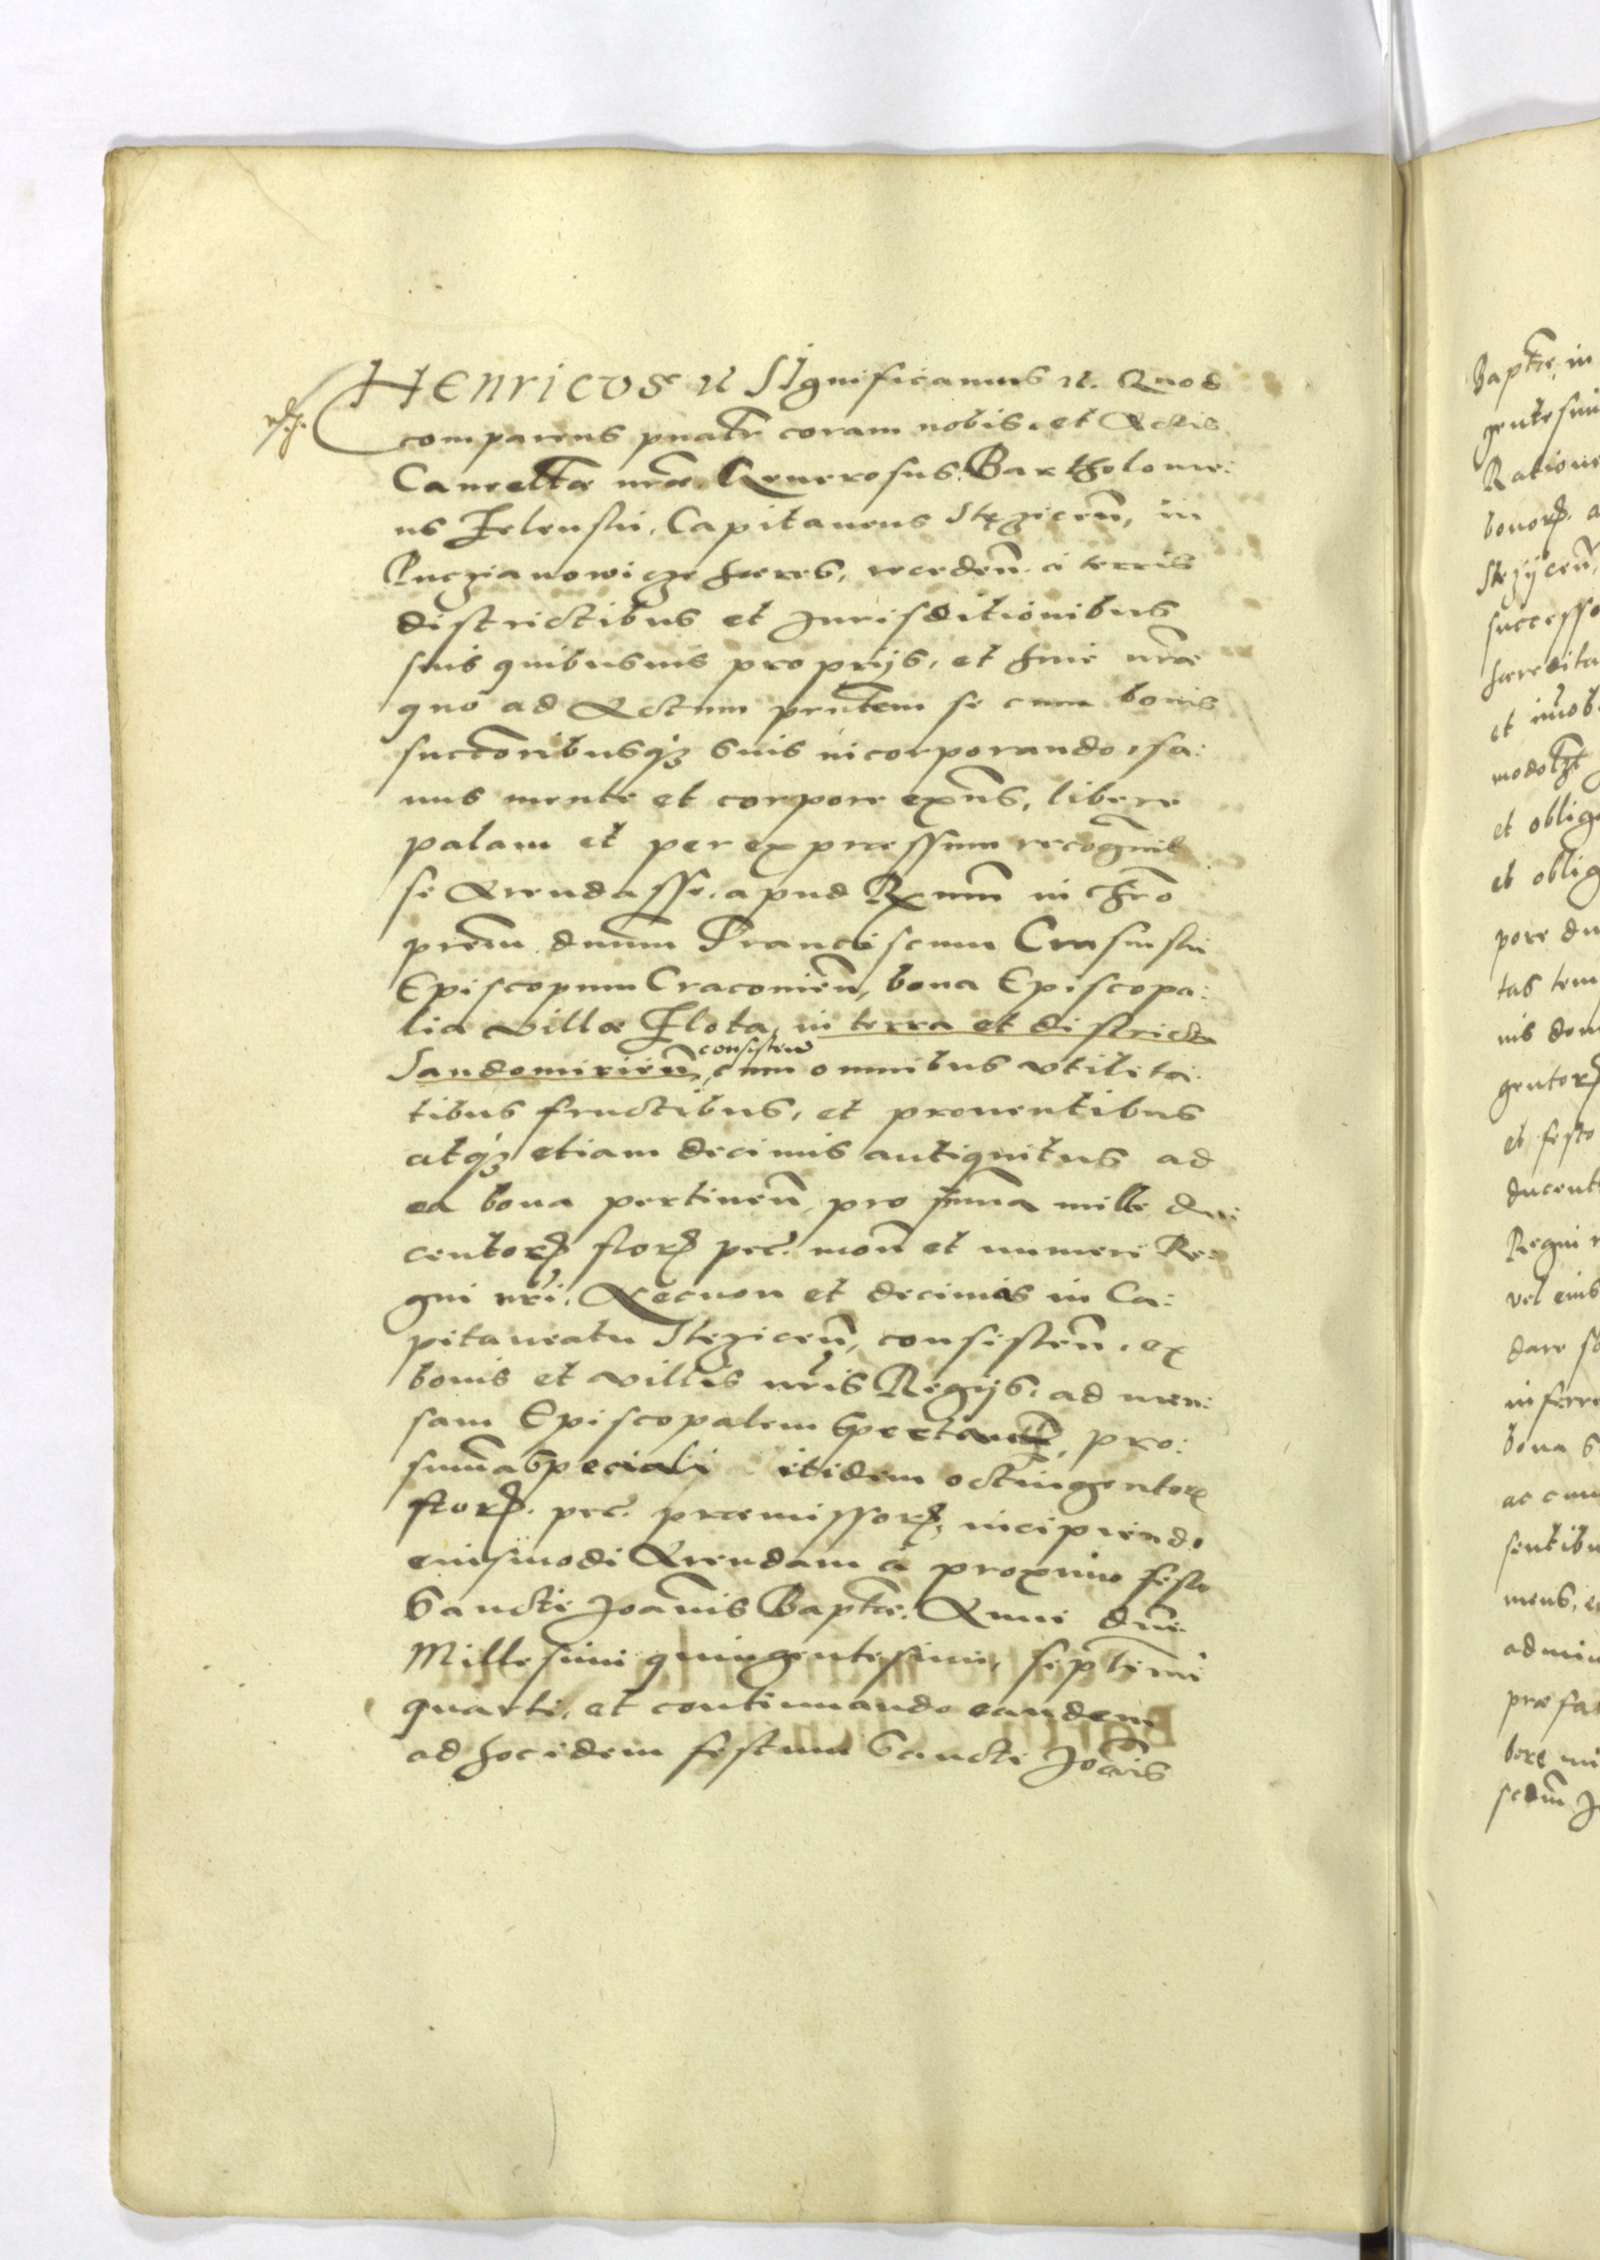 HEnricvs etc SIgnificamus etc. Quod
comparens pnālr coram nobis, et Actis
Cancell̄æ nr̄æ Generosus Bartholome:
us Zelenski, Capitaneus Stęzicen̄, in
hæres, recedēn. à terris
districtibus et Jurisditionibus
suis quibusuis proprijs, et huic nr̄æ
quo ad Actum pr̄ntem se cum bonis
succ̄oribusq₃ suis incorporando, sa:
nus mente et corpore exn̄s, libere
palam et per expressum recogn̄uit
se Arendasse, apud Rx̄mum in chr̄o
pr̄em dn̄um Franciscum Crasinski
Episcopum Cracouien̄, bona Episcopa:
lia villæ Zlota, in terra et districtu
Sandomirien̄, consisten̄ cum omnibus vtilita:
tibus fructibus, et prouentibus
atq₃ etiam decimis antiquitus ad
ea bona pertinen̄, pro sum̄a mille du
centorꝝ florꝝ pec̄. mon̄ et numeri Re:
gni nr̄i, Necnon et decimas in Ca:
pitaneatu Stezicen̄, consisten̄, ex
bonis et villis nr̄is Regijs, ad men:
sam Episcopalem pro:
sum̄a speciali itidem octingentorꝝ
florꝝ. pec̄. præmissorꝝ, incipiendo
euismodi Arendam à proximo festo
Sancti Joan̄is Bapt̄æ, Anni dn̄i
Millesimi quingentesimi, septimi
quarti, et continuando eandem
ad hoc idem festum Sancti Joān̄is
Bapt̄æ, in
Ratione
bonorꝝ. a
Stezijcen̄,
successo
hæredita
et im̄ob
et oblig
et oblig
pore du
tas tem
nis dom
gentorꝝ
et festo
ducent
Regni n
vel eius
dare so
inferre
bona s
ac cum
sentibu
mens, e
admin
præfat